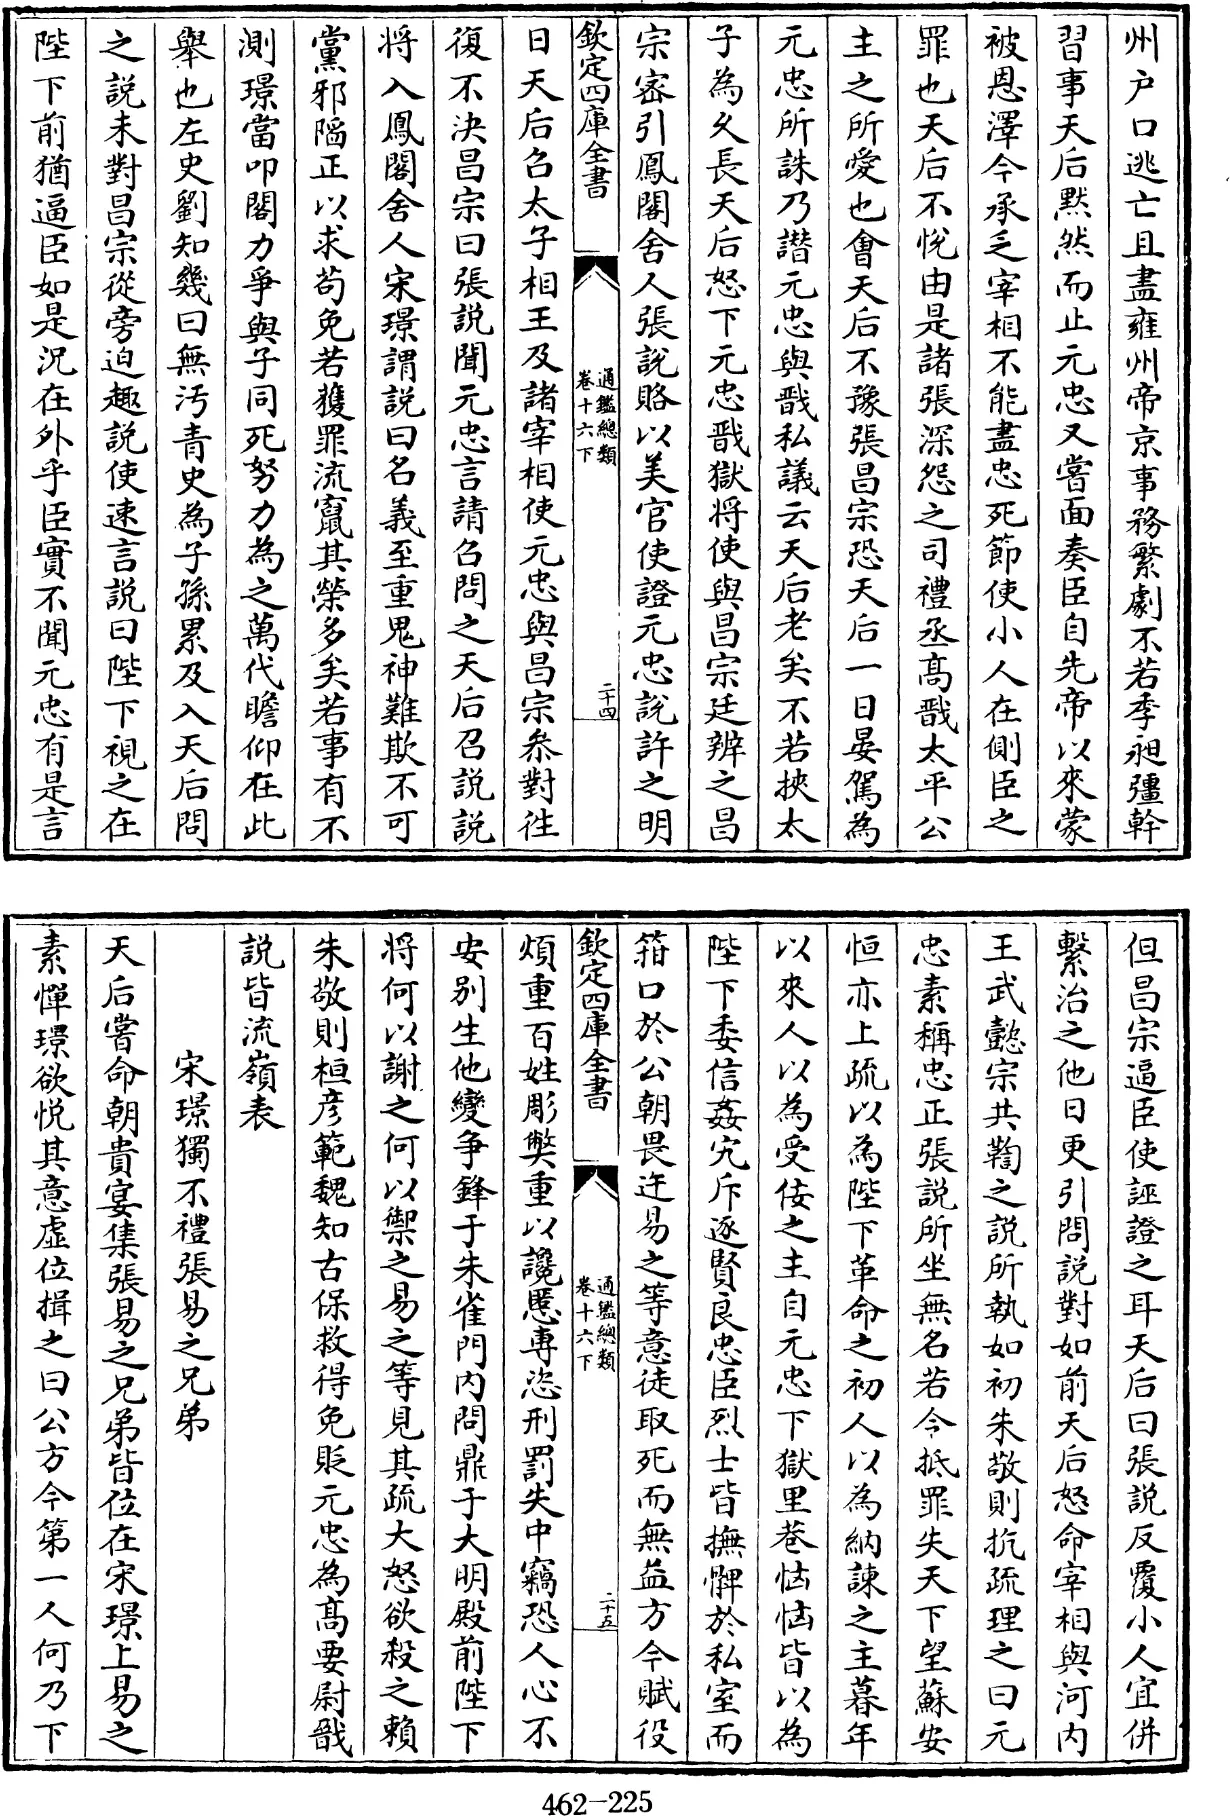 州户口逃亡且盡雍州帝京事務繁劇不若季昶彊幹
習事天后默然而止元忠又嘗面奏臣自先帝以來蒙
被恩澤今承乏宰相不能盡忠死節使小人在側臣之
罪也天后不悅由是諸張深怨之司禮丞髙戬太平公
主之所愛也會天后不豫張昌宗恐天后一日晏駕為
元忠所誅乃譖元忠與戬私議云天后老矣不若挾太
子為久長天后怒下元忠戬獄將使與昌宗廷辨之昌
宗密引鳳閣舍人張說賂以美官使證元忠說許之明
欽定四庫全書
通鑑總類
卷十六下
二十四
日天后召太子相王及諸宰相使元忠與昌宗叅對往
復不決昌宗曰張說聞元忠言請召問之天后召説説
將入鳳閣舍人宋璟謂説曰名義至重鬼神難欺不可
黨邪陷正以求茍免若獲罪流竄其榮多矣若事有不
測璟當叩閣力爭與子同死努力為之萬代瞻仰在此
舉也左史劉知幾曰無汚青史為子孫累及入天后問
之説未對昌宗從旁迫趣説使速言説曰陛下視之在
陛下前猶逼臣如是況在外乎臣實不聞元忠有是言
但昌宗逼臣使誣證之耳天后曰張説反覆小人宜併
繫治之他日更引問説對如前天后怒命宰相與河内
王武懿宗共鞫之説所執如初朱敬則抗疏理之曰元
忠素稱忠正張説所坐無名若令抵罪失天下望蘇安
恒亦上疏以為陛下革命之初人以為納諫之主暮年
以來人以為受佞之主自元忠下獄里巷恟恟皆以為
陛下委信姦宄斥逐賢良忠臣烈士皆撫髀於私室而
箝口於公朝畏迕易之等意徒取死而無益方今賦役
欽定四庫全書
通鑑總類
卷十六下
二十五
煩重百姓彫弊重以讒慝専恣刑罰失中竊恐人心不
安别生他變争鋒于朱雀門内問鼎于大明殿前陛下
將何以謝之何以禦之易之等見其疏大怒欲殺之賴
朱敬則桓彦範魏知古保救得免貶元忠為髙要尉戬
説皆流嶺表
宋璟獨不禮張易之兄弟
天后嘗命朝貴宴集張易之兄弟皆位在宋璟上易之
素憚璟欲悦其意虚位揖之曰公方今第一人何乃下
462-225